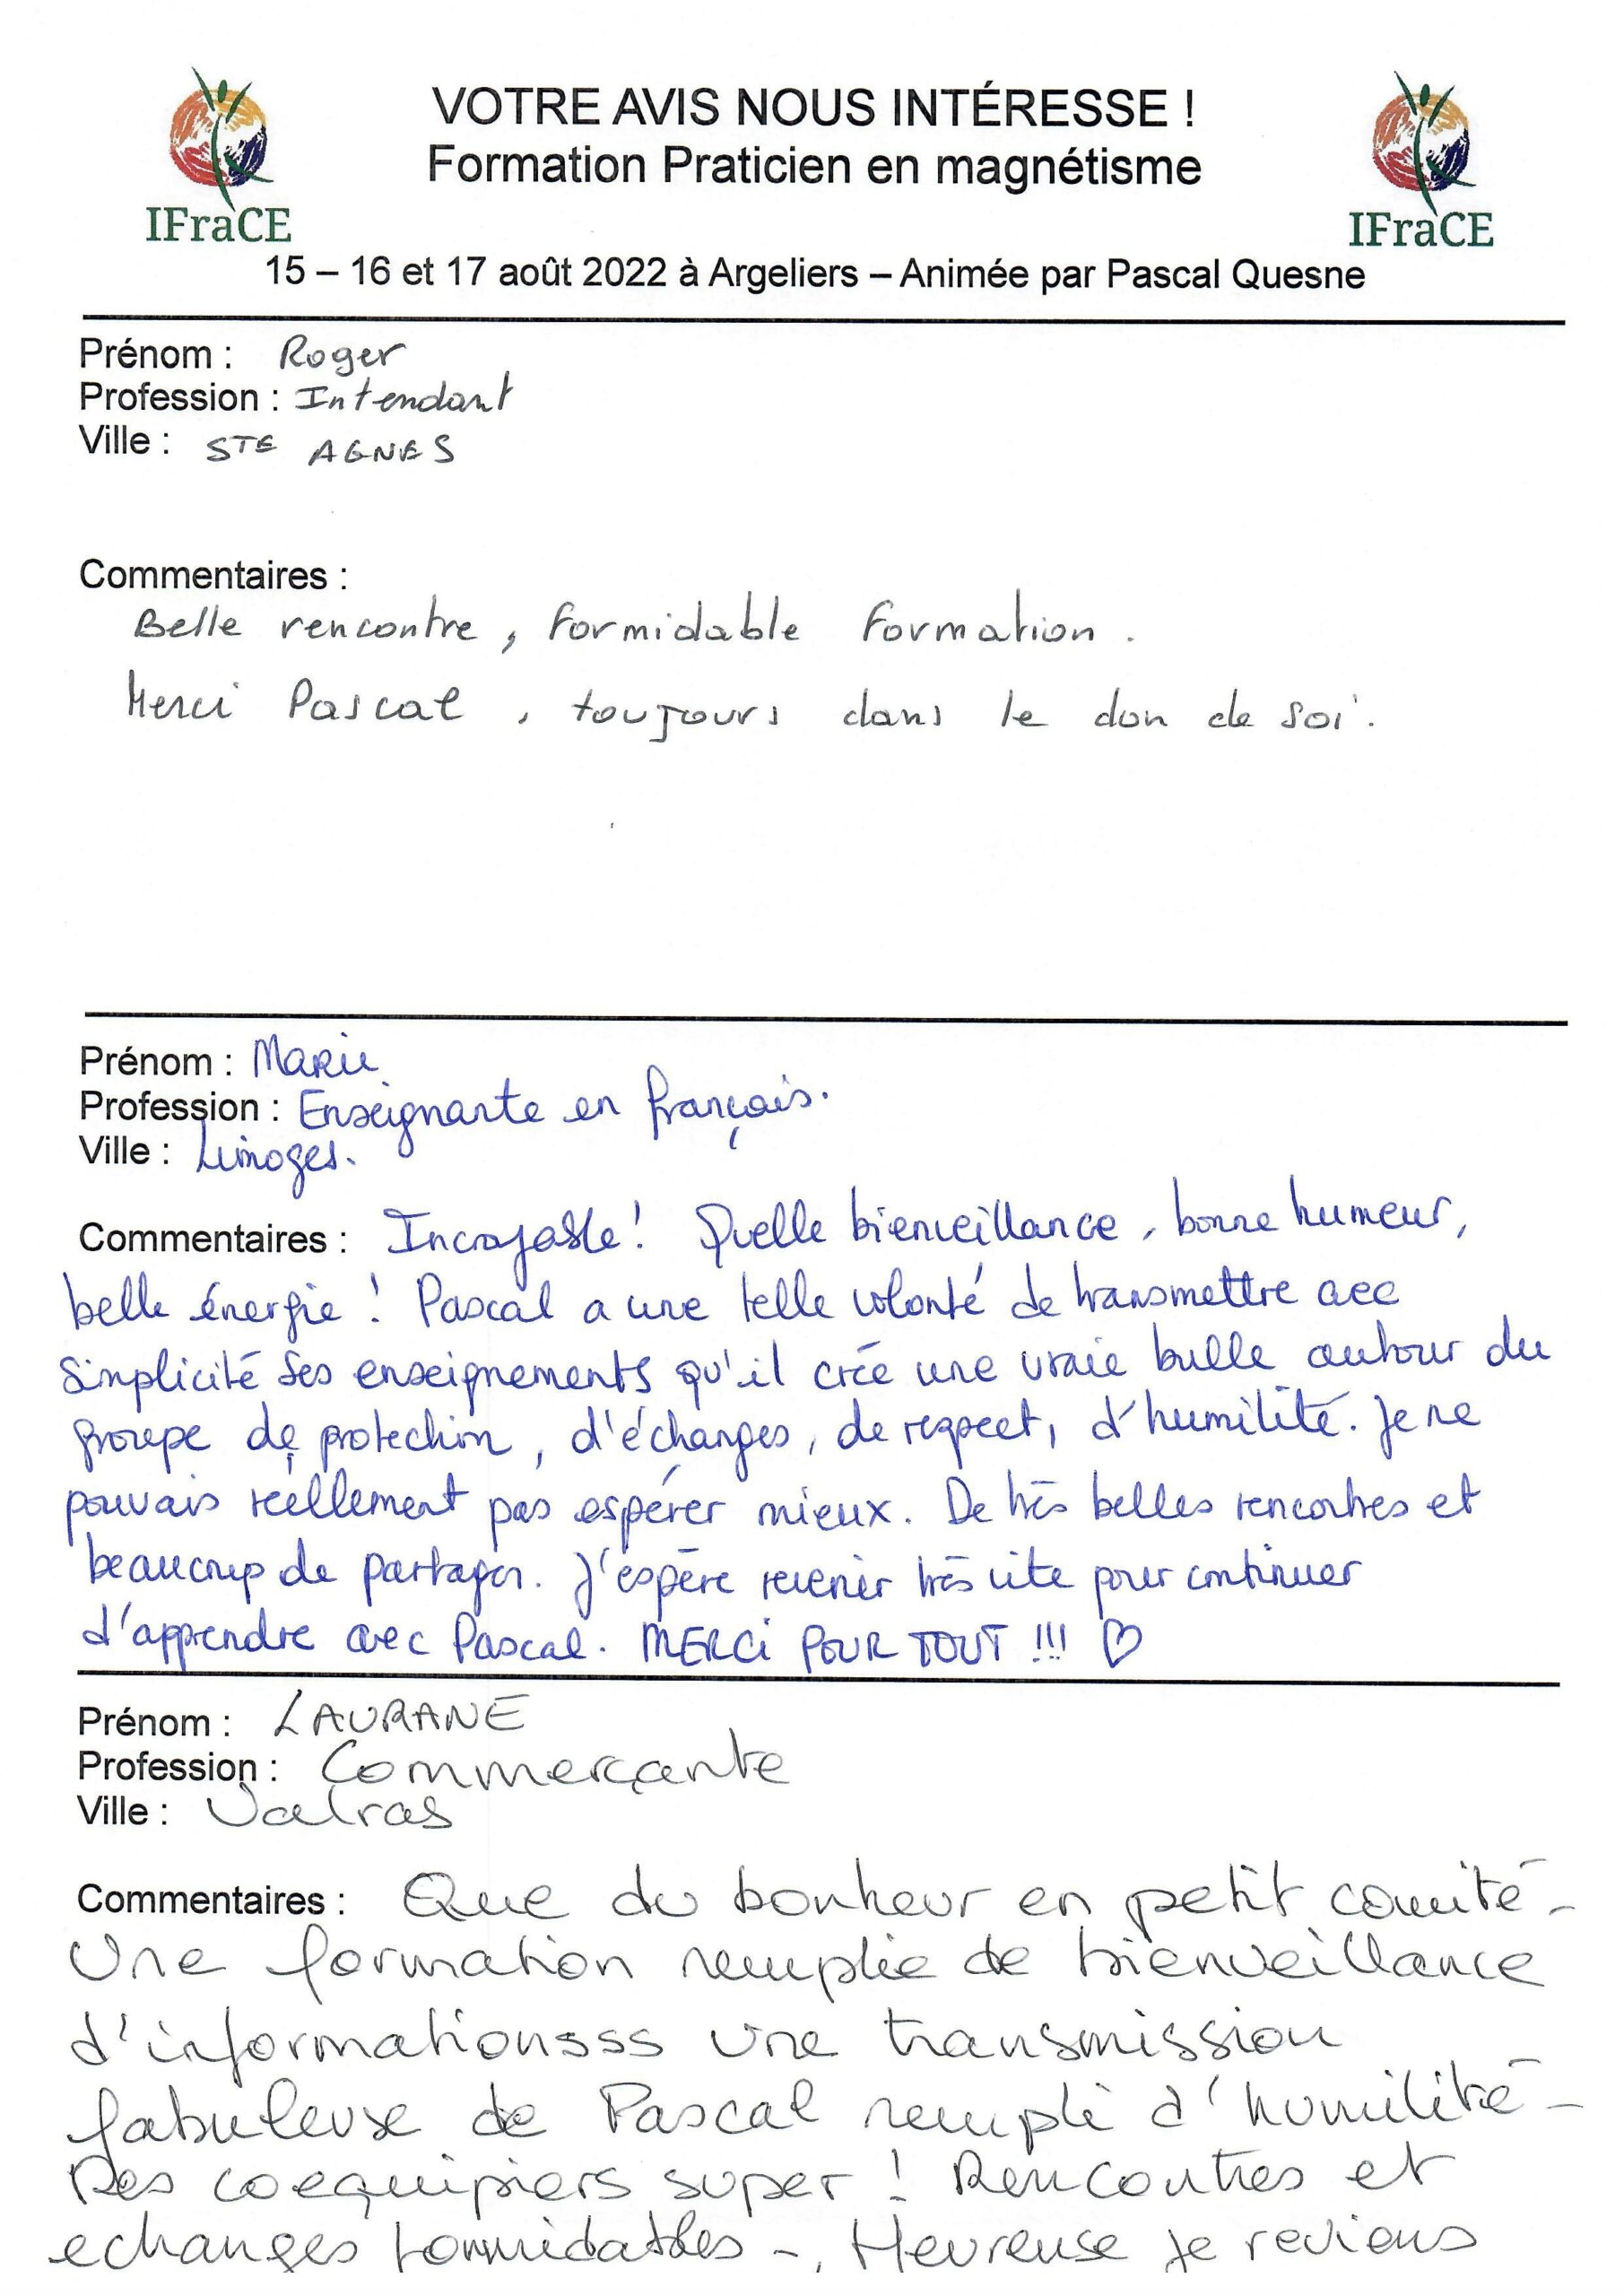 VOTRE AVIS NOUS INTÉRESSE !
Formation Praticien en magnétisme
IFraCE
IFraCE
15 – 16 et 17 août 2022 à Argeliers – Animée par Pascal Quesne
Prénom : Roger
Profession : Intendant
Ville : STE AGNES
Commentaires :
Belle rencontre, formidable formation.
Merci Pascal, toujours dans le don de soi.
Prénom : Marie
Profession : Enseignante en français.
Ville : Limoges.
Commentaires : Incroyable ! Quelle bienveillance, bonne humeur,
belle énergie ! Pascal a une telle volonté de transmettre avec
simplicité ses enseignements qu'il crée une vraie bulle autour du
groupe de protection, d'échanges, de respect, d'humilité. Je ne
pouvais réellement pas espérer mieux. De très belles rencontres et
beaucoup de partages. J'espère revenir très vite pour continuer
d'apprendre avec Pascal. MERCI POUR TOUT !!! ♡
Prénom : LAURANE
Profession : Commerçante
Ville : Valras
Commentaires : Que du bonheur en petit comité -
Une formation remplie de bienveillance
d'informationsss une transmission
fabuleuse de Pascal rempli d'humilité -
Des coequipiers super ! Rencontres et
echanges formidables -, Heureuse je reviens